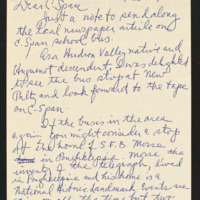 Dear C-Span
Just a note to send along
the local newspaper article on
C-Span School bus.
As a Hudson Valley native and
Huguenot descendent, I was delighted
to see the bus stop at New
Paltz and look forward to the tape
on C-Span.
If the buses in the area
again you might consider a stop
at the home of S.F.B. Morse
in Poughkeepsie. Morse the
inventor of the telegraph, lived
in Poughkeepsie and his home is a
National Historic Landmark. Events are